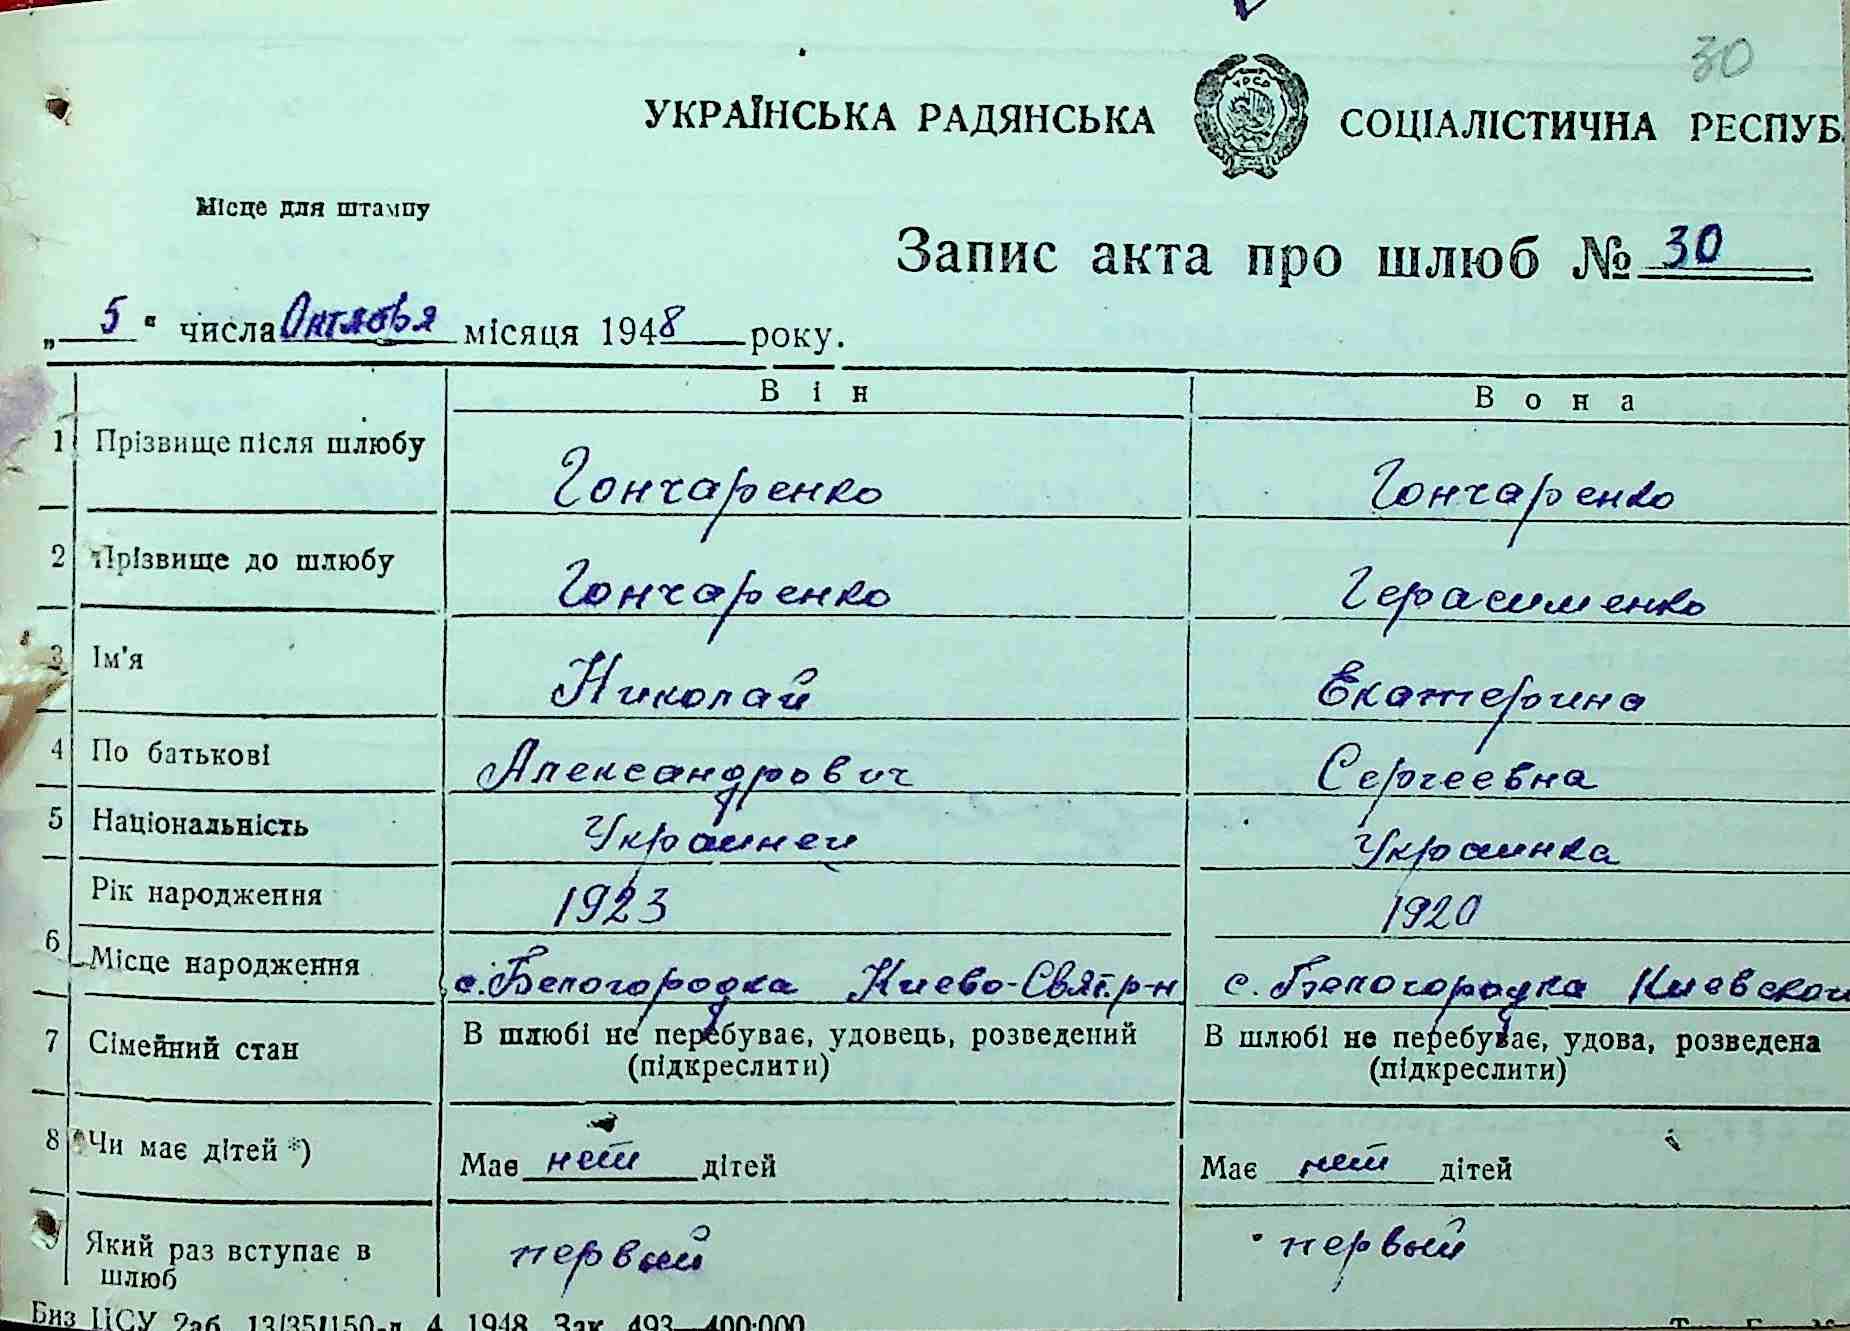 30
УКРАЇНСЬКА РАДЯНСЬКА СОЦІАЛІСТИЧНА РЕСПУБ
УРСР
Місце для штампу
Запис акта про шлюб № 30
„ 5 " числа Октября місяця 1948 року.
Він Вона
1 Прізвище після шлюбу Гончаренко Гончаренко
2 Прізвище до шлюбу Гончаренко Герасименко
3 Ім'я Николай Екатерина
4 По батькові Александрович Сергеевна
5 Національність Украинец Украинка
6 Рік народження 1923 1920
Місце народження с. Белогородка Киево-Свят. р-н с. Белогородка Киевской
7 Сімейний стан В шлюбі не перебуває, удовець, розведений (підкреслити) В шлюбі не перебуває, удова, розведена (підкреслити)
8 Чи має дітей *) Має нет дітей Має нет дітей
Який раз вступає в шлюб первый первый
Виз ЦСУ 2аб 13/351150-д 4 1948 Зак 493—400.000